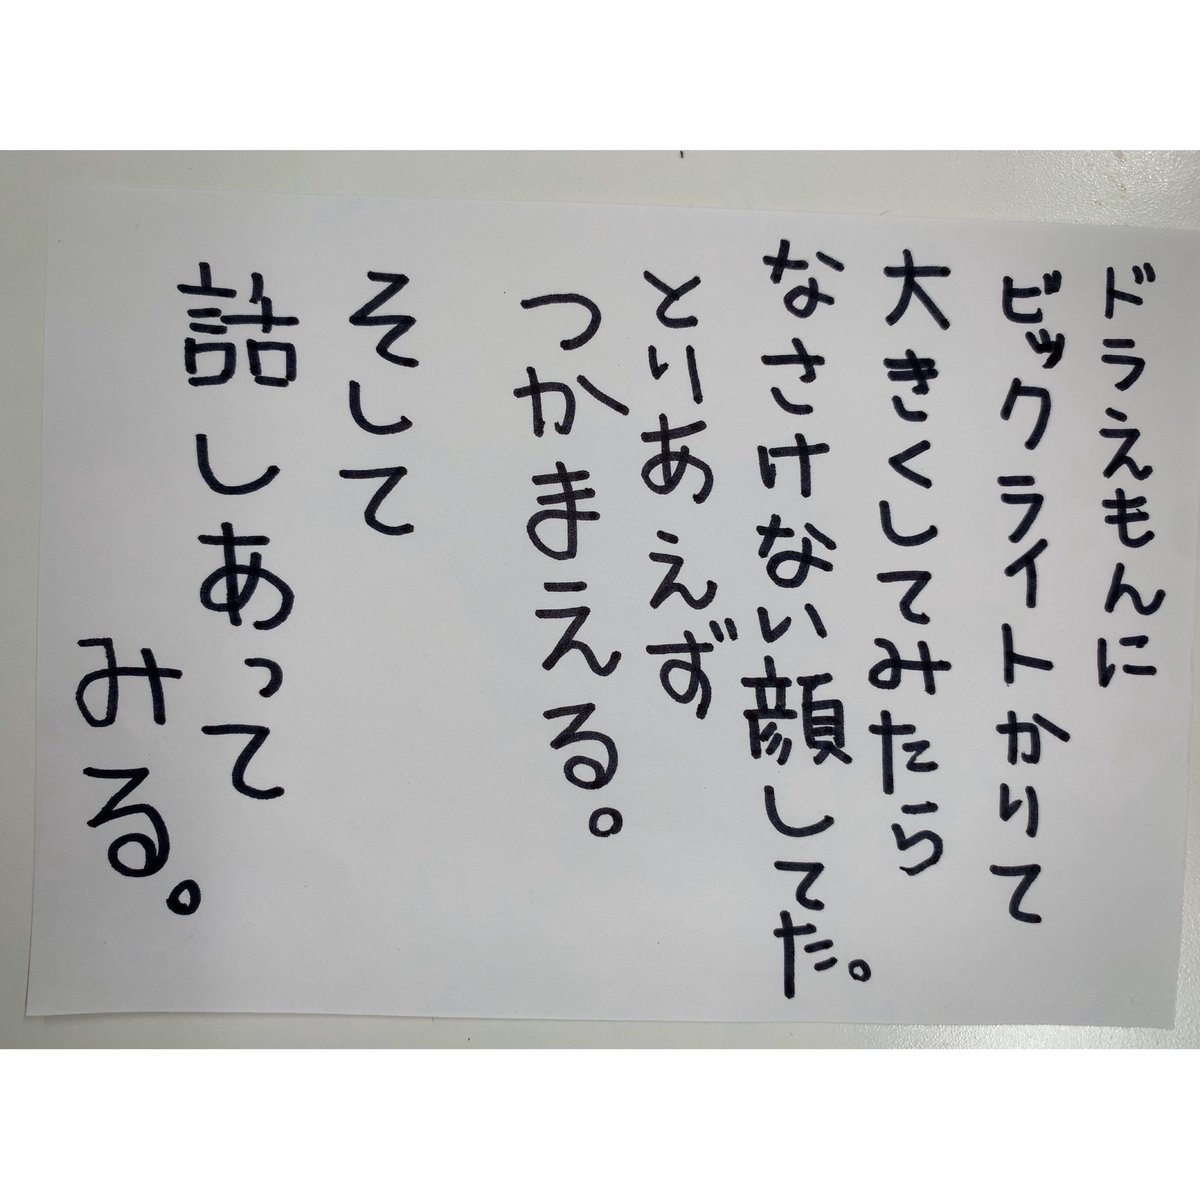 ドラえもんに
ビックライトかりて
大きくしてみたら
なさけない顔してた。
とりあえず
つかまえる。
そして
話しあって
みる。